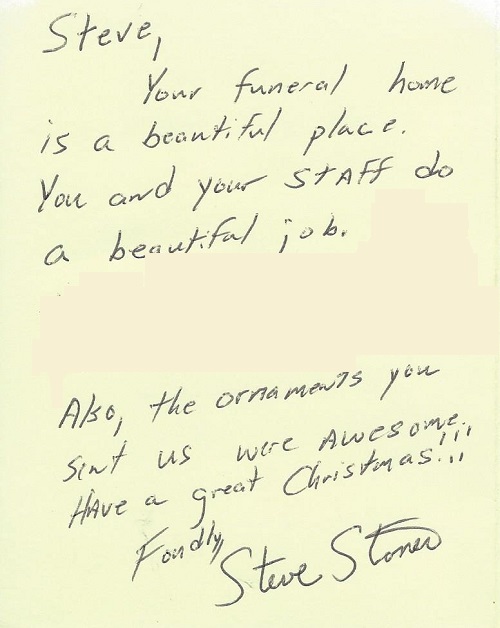 Steve,
Your funeral home
is a beautiful place.
You and your STAFF do
a beautiful job.
Also, the ornaments you
sent us were AWESOME.
HAve a great Christmas!!!
Fondly,
Steve Stoner